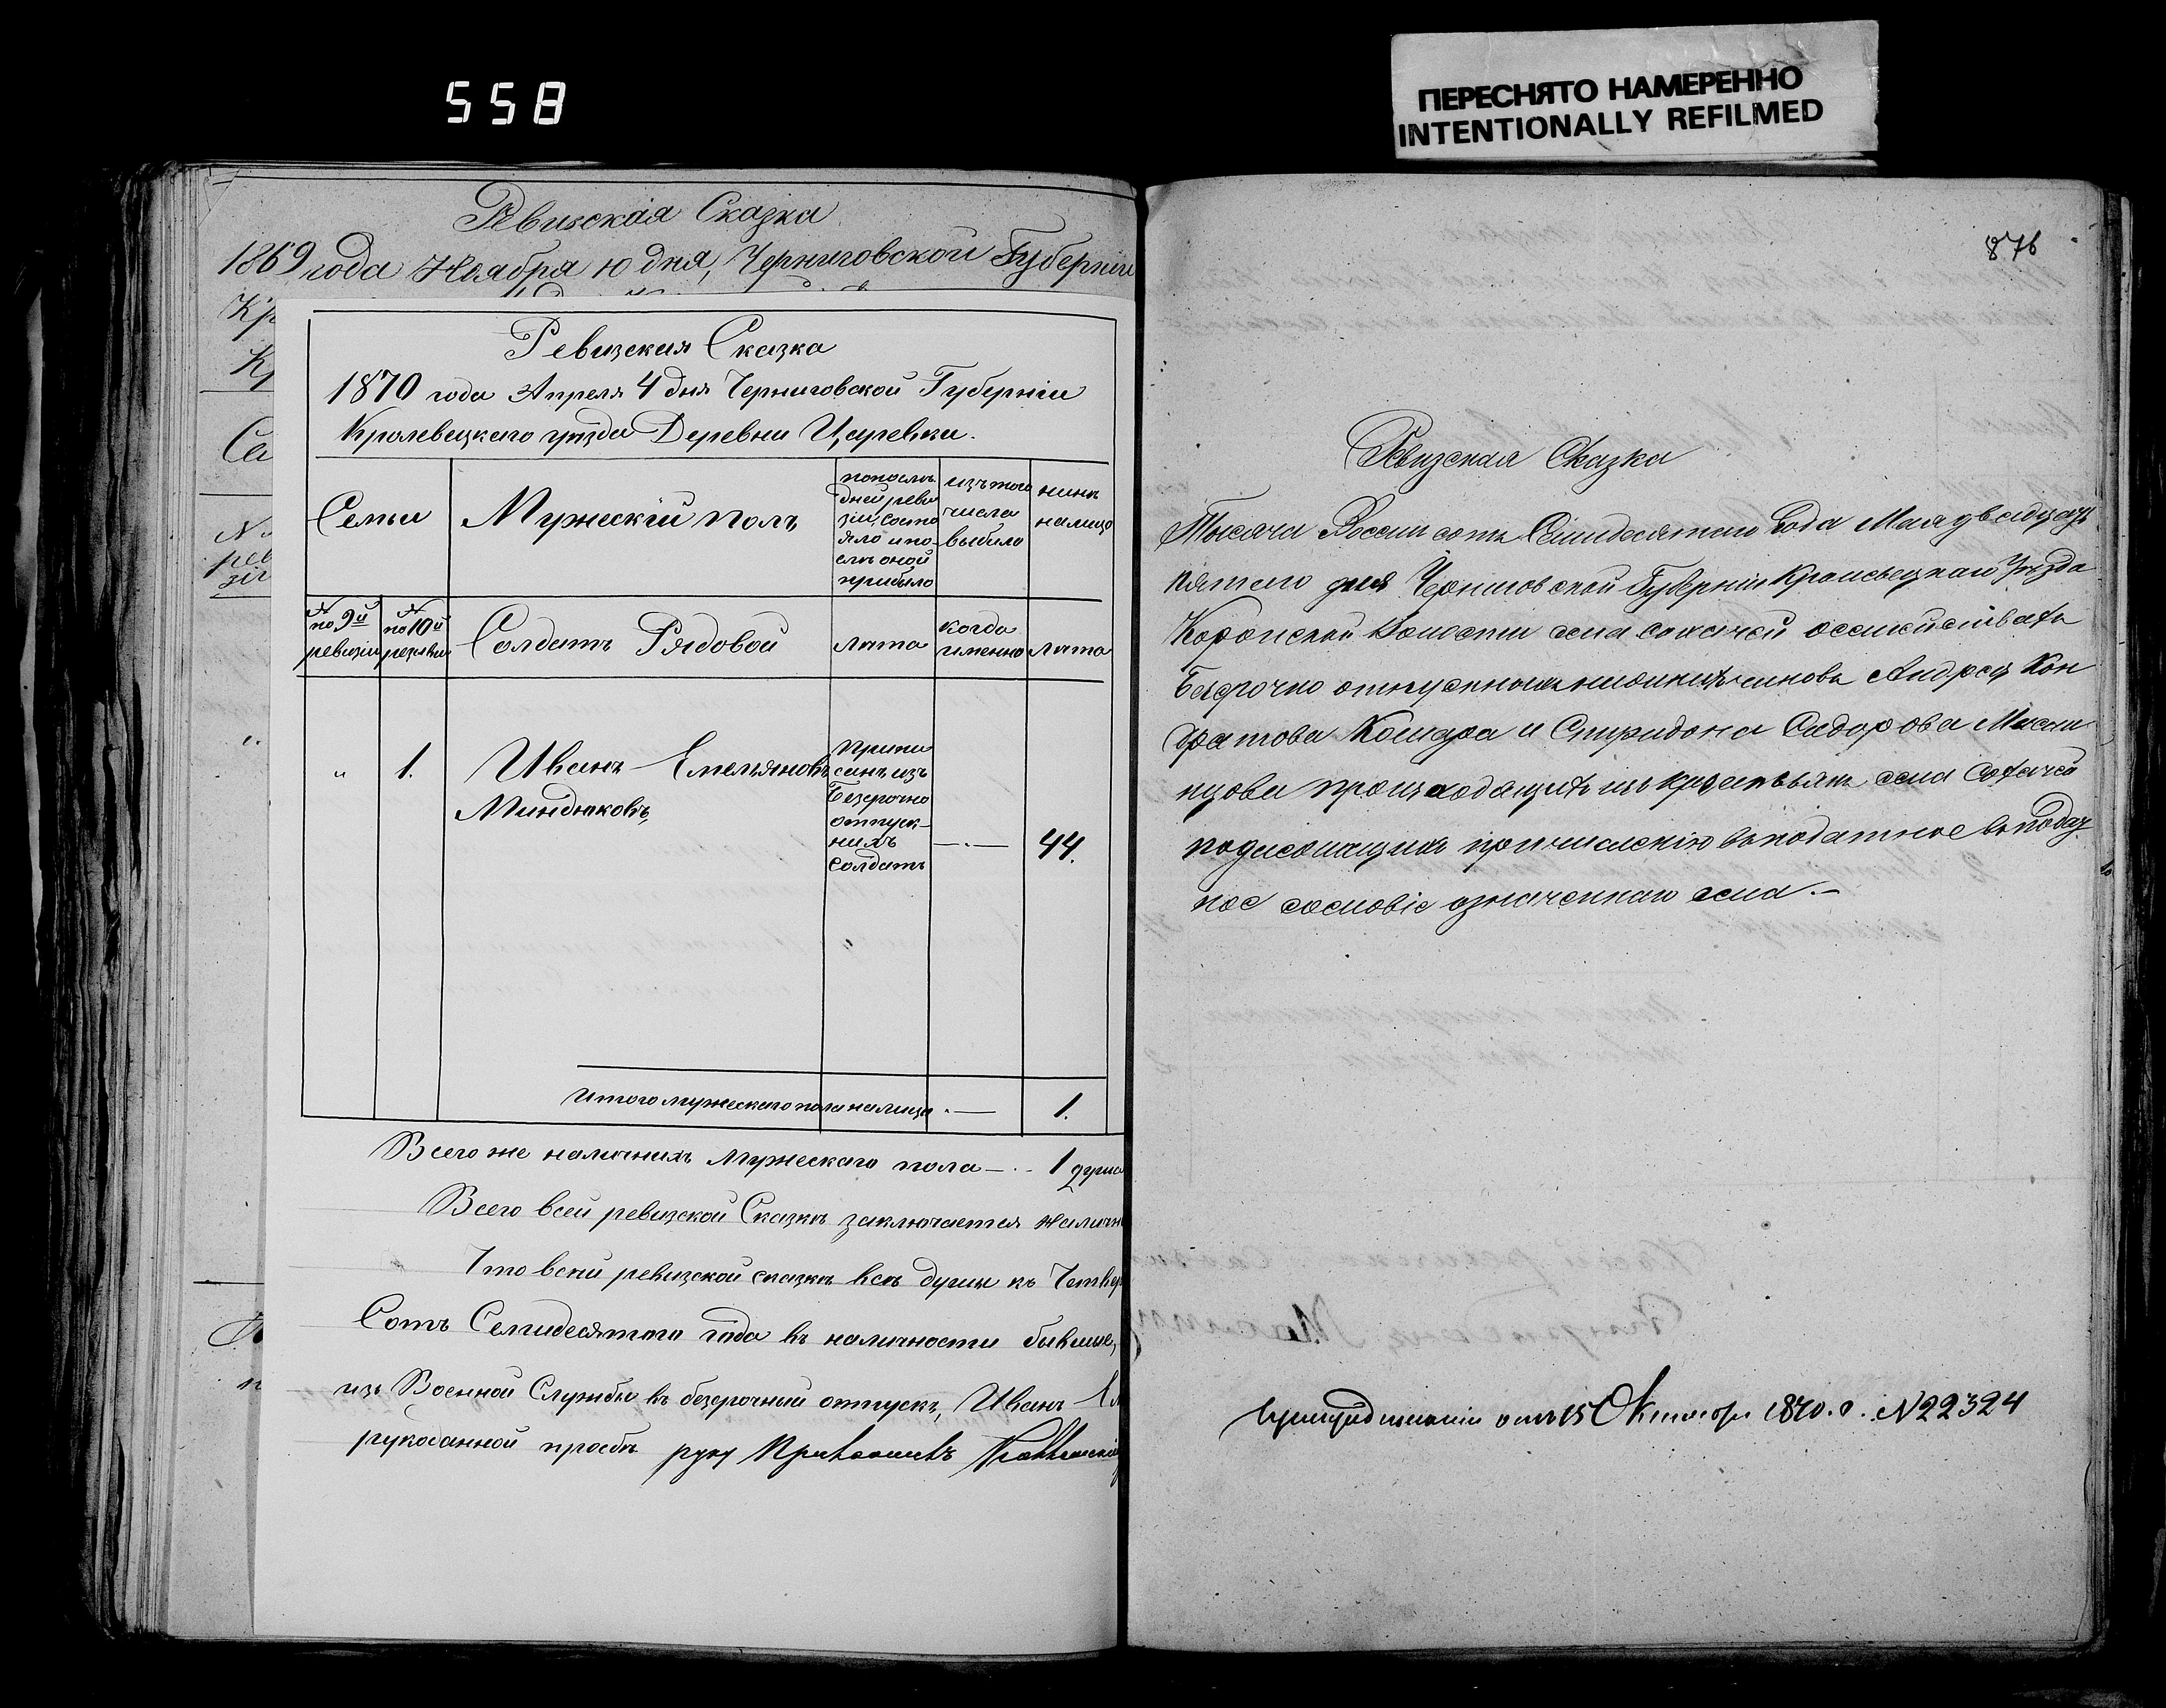 558
ПЕРЕСНЯТО НАМЕРЕННО
INTENTIONALLY REFILMED
Ревизская Сказка
1869 года Ноября 10 дня, Черниговской Губерніи
Ревизская Сказка
1870 года Апреля 4 дня Черниговской Губерніи
Кролевецкаго уѣзда Деревни Царевки.
Семьи
Мужескій полъ
по послѣ
дней реви
зіи состо
яло и по-
слѣ оной
прибыло
изъ того
числа
выбыло
нынѣ
налицо
№
по 9й
ревизіи
№
по 10й
ревизіи
Солдатъ Рядовой
лѣта
когда
именно
лѣта
"
1.
Иванъ Емельяновъ
Миндюковъ
Припи
санъ изъ
Безсрочно
отпуск-
нихъ
солдатъ
— . —
44.
Итого мужескаго пола налицо . —
1.
Всего же наличнихъ мужескаго пола — . . 1 душа
Всего всей ревизской Сказкѣ заключается наличн
Что всей ревизской сказкѣ всѣ души къ Четвер
Сотъ Семидесятого года въ наличности бывшие,
изъ Военной Службы въ безсрочный отпускъ, Иванъ Ем
рукоданной прозбѣ руку
876
Ревизская Сказка
Тысяча Восемь сотъ Семидесятаго Года Мая двадцать
пятаго дня Черниговской Губерніи Кролевецкаго Уѣзда
Коропской Волости села о
Безсрочно отпускныхъ нижнихъ чиновъ Андрея Кон
дратова Комара и Спиридона Сидорова
происходящихъ изъ крестьянъ села
подлежащихъ причисленію въ податное
ное сословіе означеннаго села. —
отъ 15 Октября 1870. г. № 22324